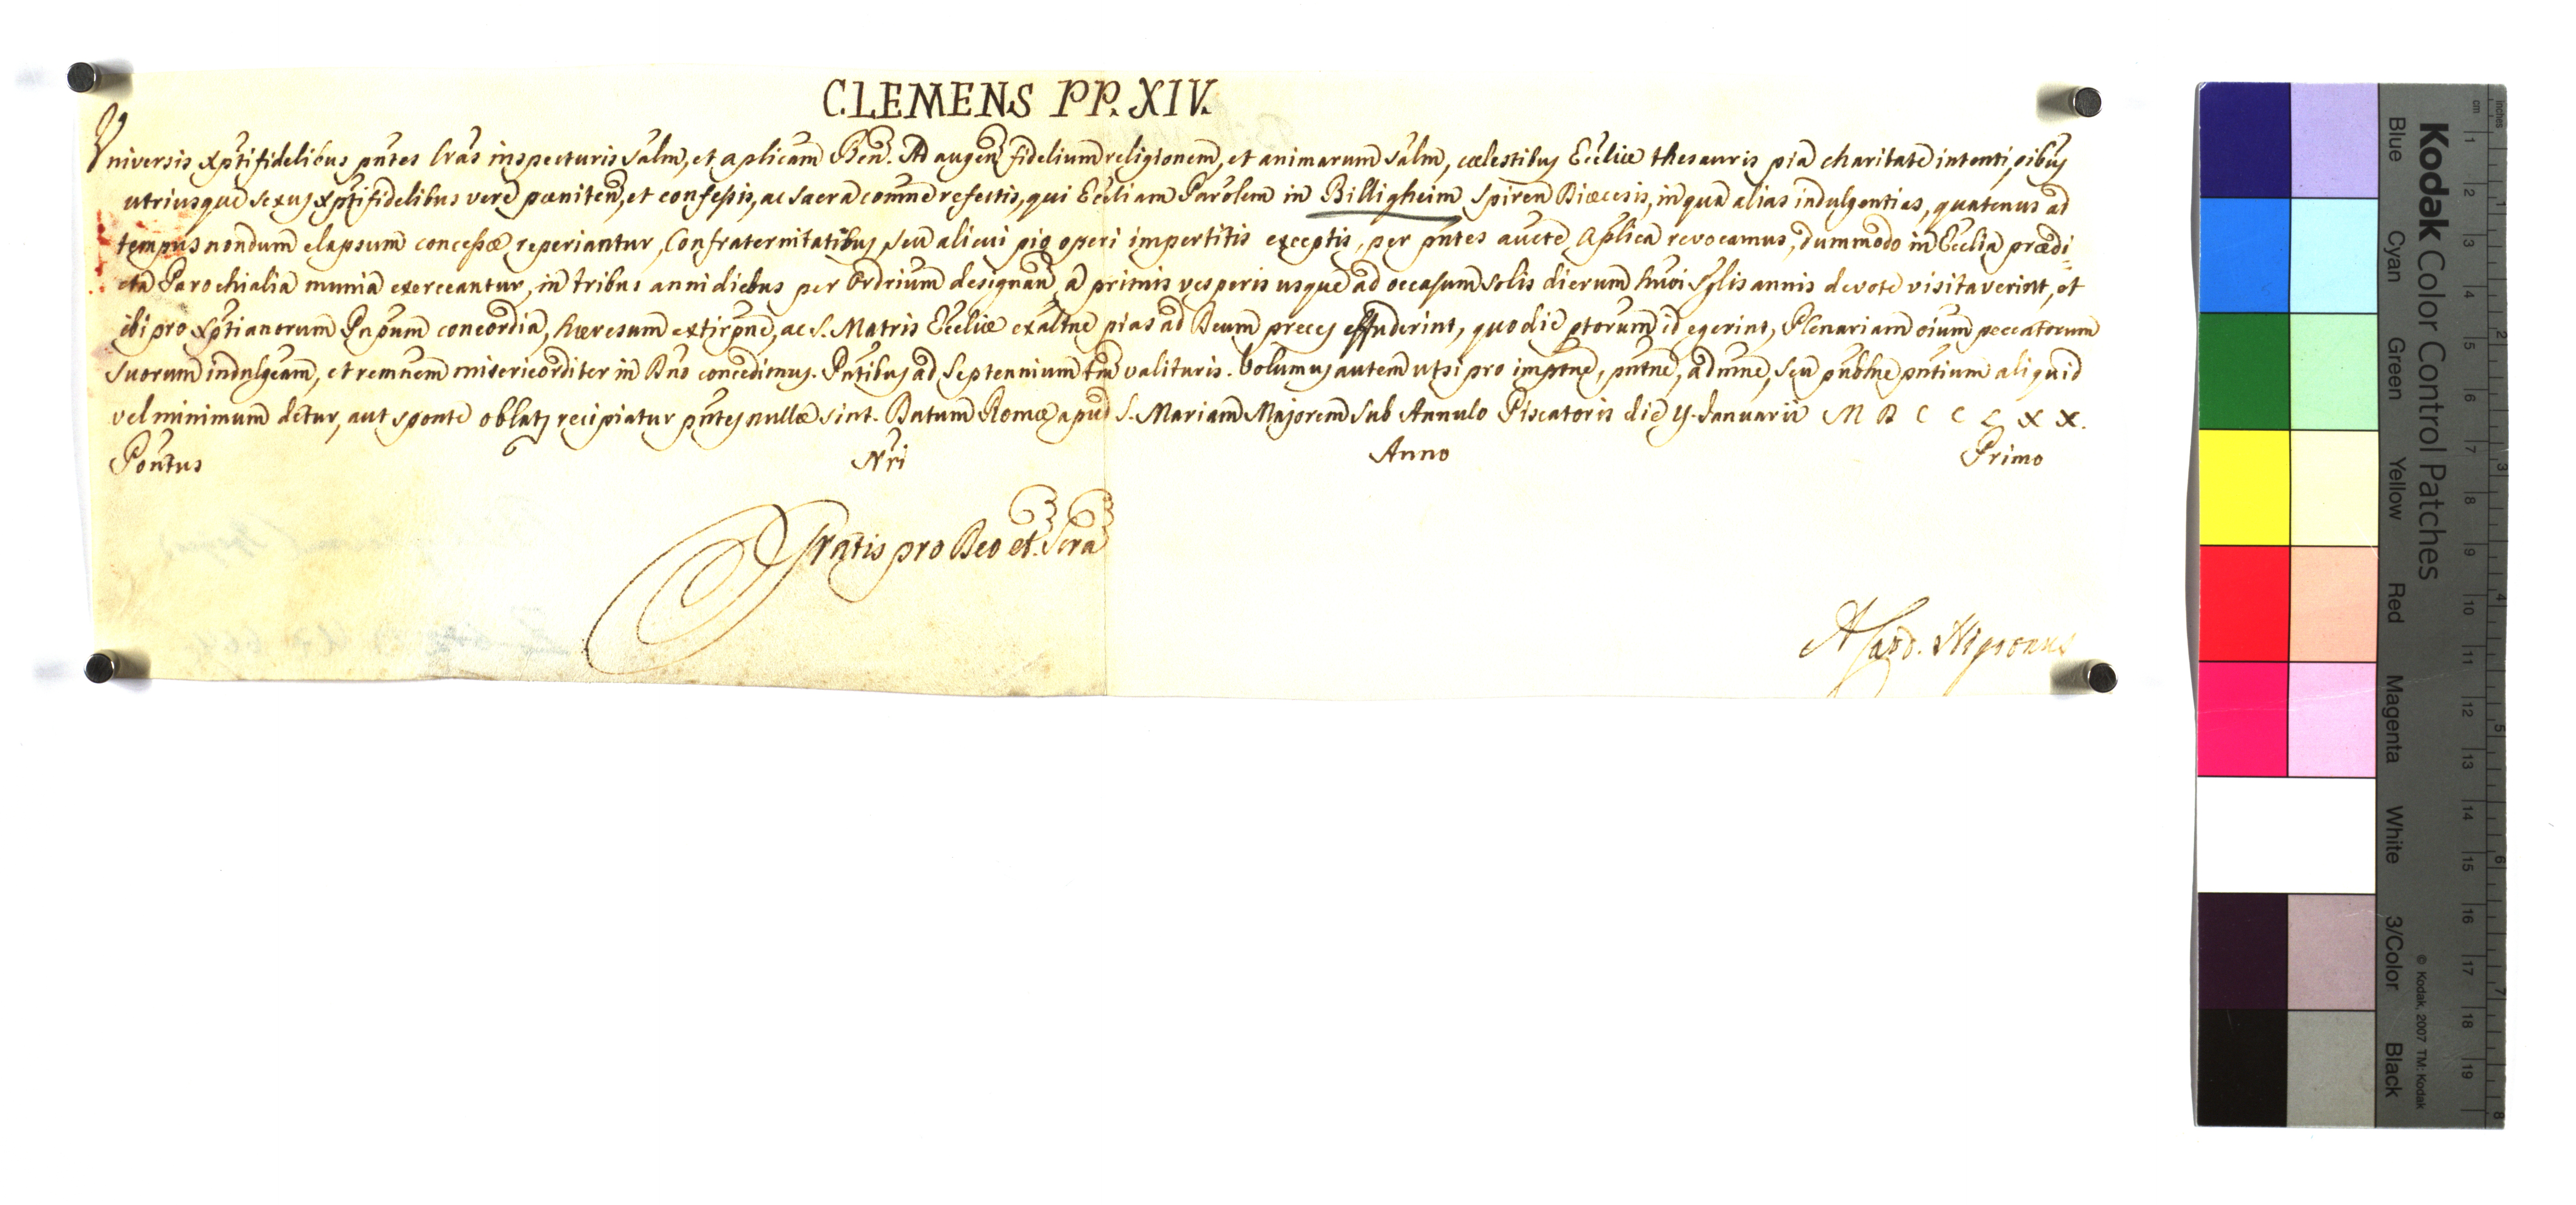 CLEMENS PP. XIV.
Universis Xpti fidelibus pntes lras inspecturis salm, et aplicam Ben. Ad augen fidelium religionem, et animarum salm, cælestibus Eccliæ thesauris pia charitate intenti, oibus
utriusque sexus Xpti fidelibus vere pœniten, et confessis, ac sacra comne refectis, qui Eccliam Parolem in Billigheim Spiren Diœcesis, in qua alias indulgentias, quatenus ad
tempus nondum elapsum concessæ reperiantur, Confraternitatibus seu alicui pio operi impertitis exceptis, per pntes aucte Aplica revocamus, dummodo in Ecclia prædi
cta Parochialia munia exerceantur, in tribus anni diebus per Ordrium designan, a primis vesperis usque ad occasum solis dierum huoi sglis annis devote visitaverint, et
ibi pro Xptianorum Pnpum concordia, hæresum extirpne, ac S. Matris Eccliæ exaltne pias ad Deum preces effuderint, quo die ptorum id egerint, Plenariam oium peccatorum
suorum indulgeam, et remnem misericorditer in Dno concedimus. Pntibus ad Septennium tm valituris. Volumus autem ut si pro imptne, pntne, admne, seu publne pntium aliquid
vel minimum detur, aut sponte oblatj recipiatur pntes nullæ sint. Datum Romæ apud S. Mariam Majorem sub Annulo Piscatoris die Januarii M D C C L X X.
Pontus Nri Anno Primo
Gratis pro Deo et Scra
A Card. Nigronus
Kodak Color Control Patches
Blue Cyan Green Yellow Red Magenta White 3/Color Black
© Kodak, 2007 TM: Kodak
cm 1 2 3 4 5 6 7 8 9 10 11 12 13 14 15 16 17 18 19
inches 1 2 3 4 5 6 7 8